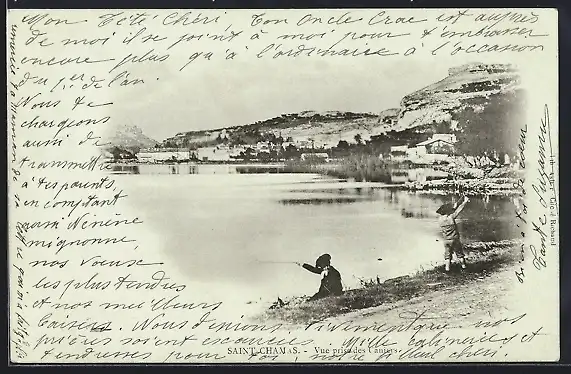 Mon Tété Chéri, Ton Oncle Crac est auprès
de moi il se joint à moi pour t'embrasser
encore plus qu'à l'ordinaire à l'occasion
du 1er de l'an.
Nous te
chargeons
aussi de
transmettre
à tes parents,
en comptant
aussi Nénène
mignonne,
nos voeux
les plus tendres
et nos meilleurs
baisers. Nous désirons vivement que nos
prières soient exaucées. Mille calineries et
tendresses pour toi, notre filleul chéri.
SAINT-CHAMAS. - Vue prise des Cantons
bien à toi de coeur
Tante Suzanne